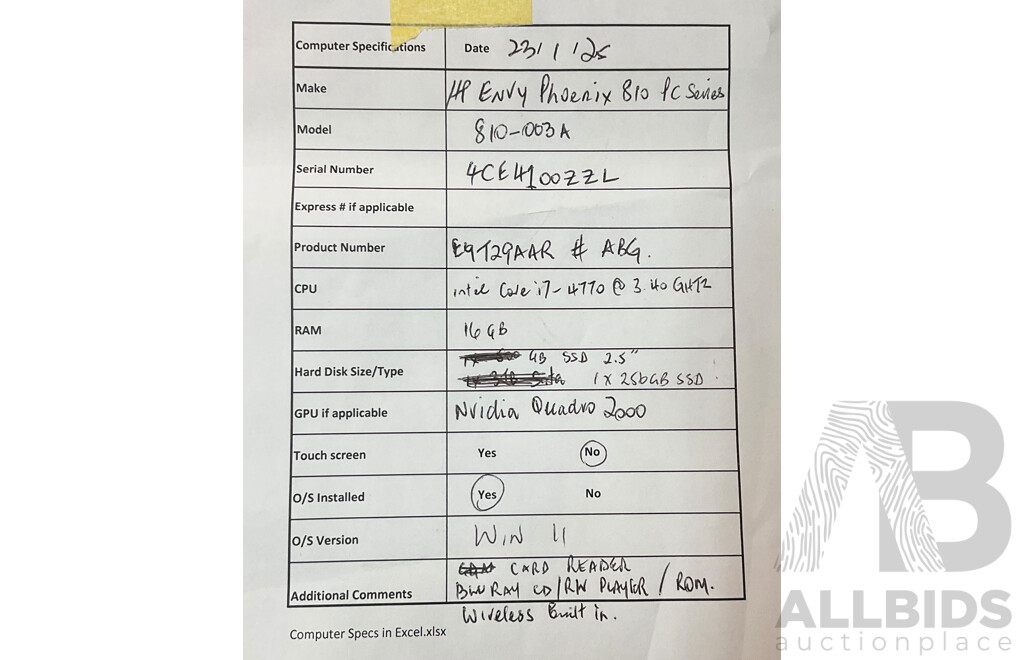 Computer Specifications Date 23/1/25
Make HP ENVY Phoenix 810 PC Series
Model 810-003A
Serial Number 4CE4100ZZL
Express # if applicable
Product Number E9T29AAR # ABG.
CPU intel Core i7-4770 @ 3.40 GHTZ
RAM 16 GB
Hard Disk Size/Type GB SSD 2.5"
1 X 256GB SSD.
GPU if applicable Nvidia Quadro 2000
Touch screen Yes No
O/S Installed Yes No
O/S Version WIN 11
Additional Comments CARD READER
BLU RAY CD/RW PLAYER / ROM.
Wireless Built in.
Computer Specs in Excel.xlsx
AB
ALLBIDS
auctionplace